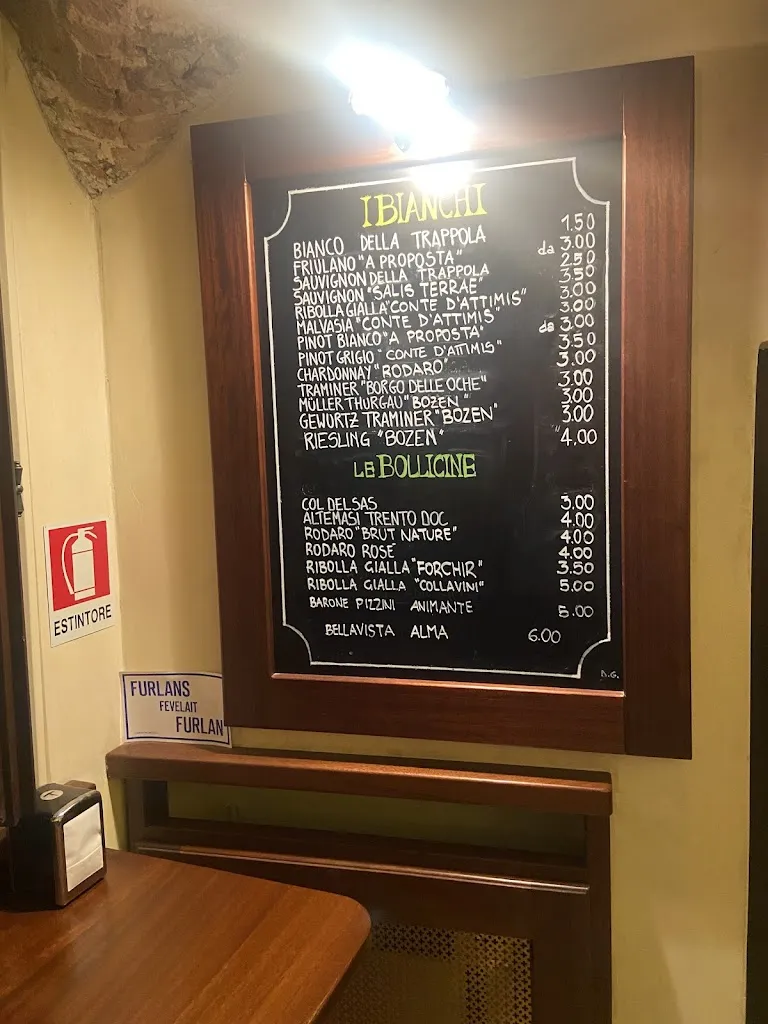 I BIANCHI
BIANCO DELLA TRAPPOLA 1.50
FRIULANO "A PROPOSTA" da 3.00
SAUVIGNON DELLA TRAPPOLA 2.50
SAUVIGNON "SALIS TERRAE" 3.50
RIBOLLA GIALLA "CONTE D'ATTIMIS" 3.00
MALVASIA "CONTE D'ATTIMIS" 3.00
PINOT BIANCO "A PROPOSTA" da 3.00
PINOT GRIGIO "CONTE D'ATTIMIS" 3.50
CHARDONNAY "RODARO" 3.00
TRAMINER "BORGO DELLE OCHE" 3.00
MÜLLER THURGAU "BOZEN" 3.00
GEWÜRTZ TRAMINER "BOZEN" 3.00
RIESLING "BOZEN" 4.00
LE BOLLICINE
COL DEL SAS 3.00
ALTEMASI TRENTO DOC 4.00
RODARO "BRUT NATURE" 4.00
RODARO ROSE 4.00
RIBOLLA GIALLA "FORCHIR" 3.50
RIBOLLA GIALLA "COLLAVINI" 5.00
BARONE PIZZINI ANIMANTE 5.00
BELLAVISTA ALMA 6.00
D.G.
ESTINTORE
FURLANS
FEVELAIT
FURLAN